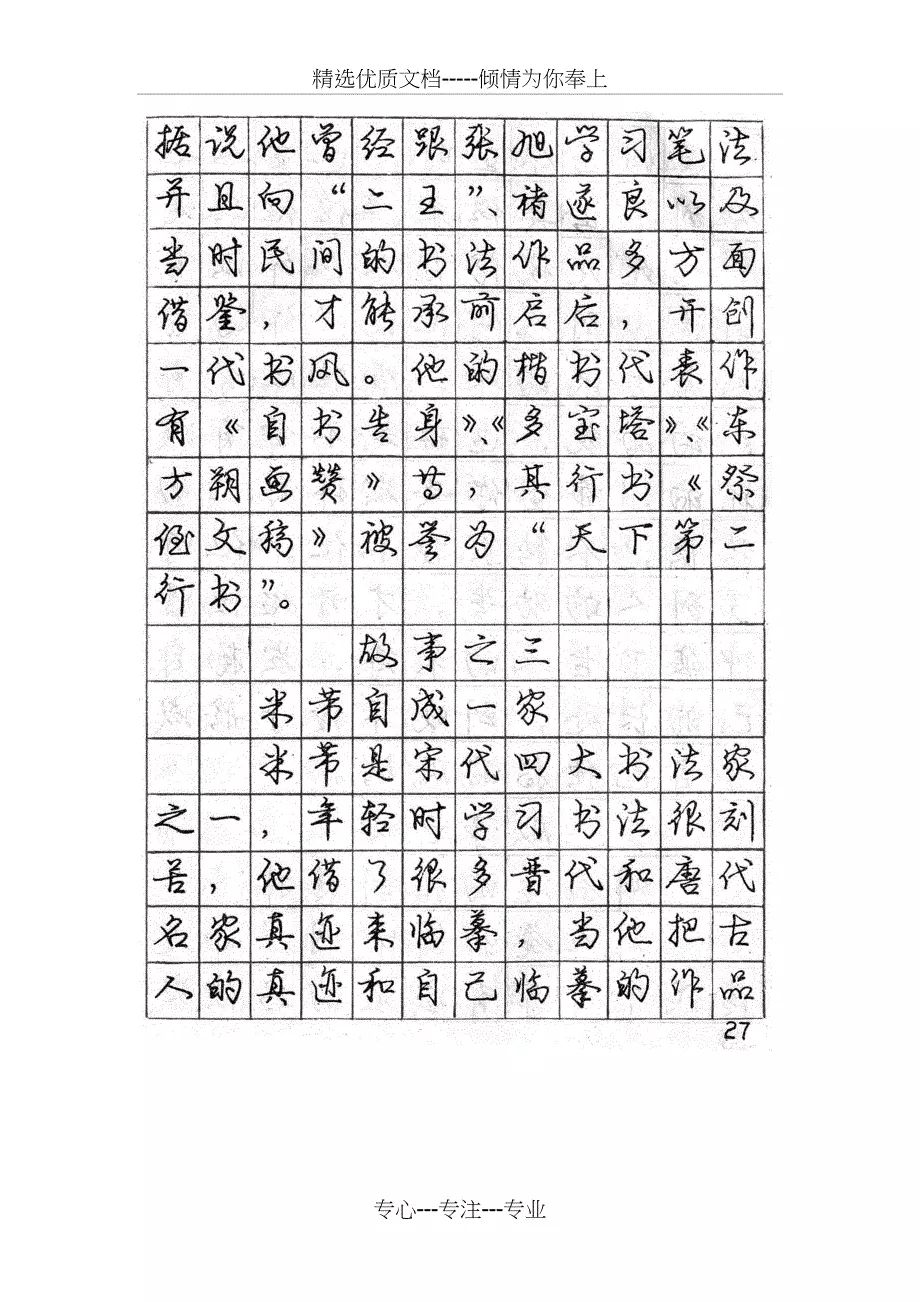 精选优质文档-----倾情为你奉上
据说他曾经跟张旭学习笔法
并且向“二王”、褚遂良以及
当时民间的书法作品多方面
借鉴，才能承前启后，开创
一代书风。他的楷书代表作
有《自书告身》、《多宝塔》、《东
方朔画赞》等，其行书《祭
侄文稿》被誉为“天下第二
行书”。
故事之三
米芾自成一家
米芾是宋代四大书法家
之一，年轻时学习书法很刻
苦，他借了很多晋代和唐代
名家真迹来临摹，当他把古
人的真迹和自己临摹的作品
27
专心---专注---专业